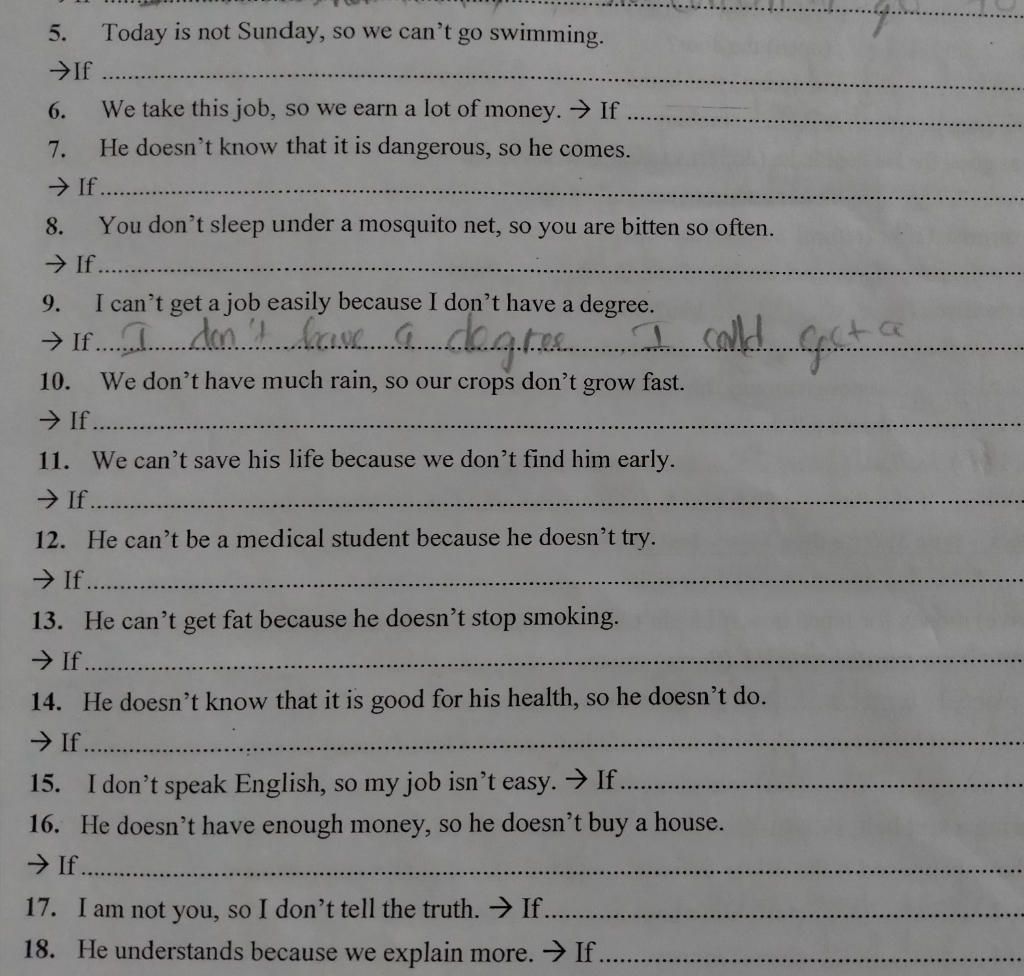 go to
5. Today is not Sunday, so we can't go swimming.
→If ........................................................
6. We take this job, so we earn a lot of money. → If ........................................................
7. He doesn't know that it is dangerous, so he comes.
→ If........................................................
8. You don't sleep under a mosquito net, so you are bitten so often.
→ If........................................................
9. I can't get a job easily because I don't have a degree.
→ If.... I don't have a degree I could get a
10. We don't have much rain, so our crops don't grow fast.
→ If........................................................
11. We can't save his life because we don't find him early.
→ If........................................................
12. He can't be a medical student because he doesn't try.
→ If........................................................
13. He can't get fat because he doesn't stop smoking.
→ If........................................................
14. He doesn't know that it is good for his health, so he doesn't do.
→ If........................................................
15. I don't speak English, so my job isn't easy. → If........................................................
16. He doesn't have enough money, so he doesn't buy a house.
→ If........................................................
17. I am not you, so I don't tell the truth. → If........................................................
18. He understands because we explain more. → If........................................................